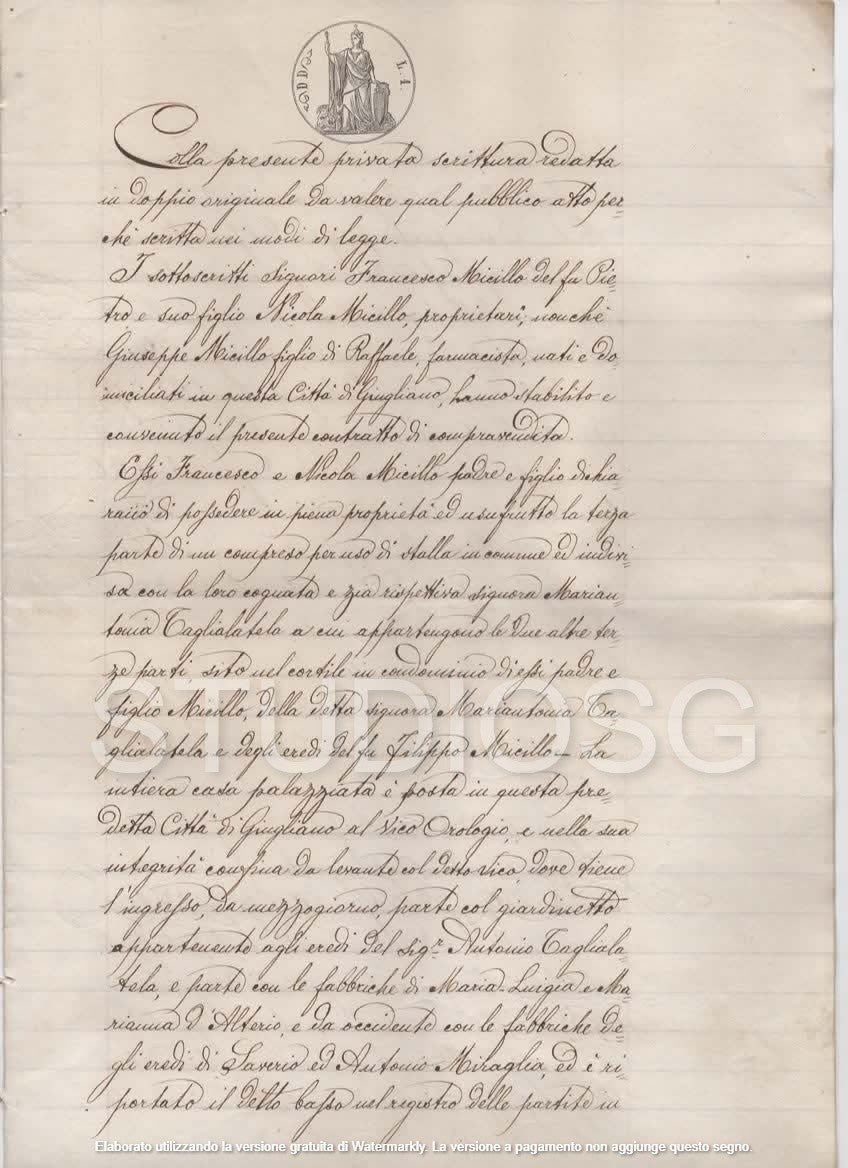 DD L. 1.
Colla presente privata scrittura redatta
in doppio originale da valere qual pubblico atto per=
chè scritta nei modi di legge.
I sottoscritti Signori Francesco Micillo del fu Pie=
tro e suo figlio Nicola Micillo, proprietari, nonchè
Giuseppe Micillo figlio di Raffaele, farmacista, nati e do=
miciliati in questa Città di Giugliano, hanno stabilito e
convenuto il presente contratto di compravendita.
Essi Francesco e Nicola Micillo padre e figlio dichia=
rano di possedere in piena proprietà ed usufrutto la terza
parte di un compreso per uso di stalla in comune ed indivi=
sa con la loro cognata e zia rispettiva signora Marian=
tonia Taglialatela a cui appartengono le due altre ter=
ze parti, sito nel cortile in condominio di essi padre e
figlio Micillo, della detta signora Mariantonia Ta=
glialatela e degli eredi del fu Filippo Micillo — La
intiera casa palazziata è posta in questa pre=
detta Città di Giugliano al Vico Orologio, e nella sua
integrità confina da levante col detto vico, dove tiene
l'ingresso, da mezzogiorno, parte col giardinetto
appartenente agli eredi del Sigr. Antonio Tagliala=
tela, e parte con le fabbriche di Maria-Luigia e Ma=
rianna d'Alterio, e da occidente con le fabbriche de=
gli eredi di Saverio ed Antonio Miraglia, ed è ri=
portato il detto basso nel registro delle partite in
STUDIOSG
Elaborato utilizzando la versione gratuita di Watermarkly. La versione a pagamento non aggiunge questo segno.